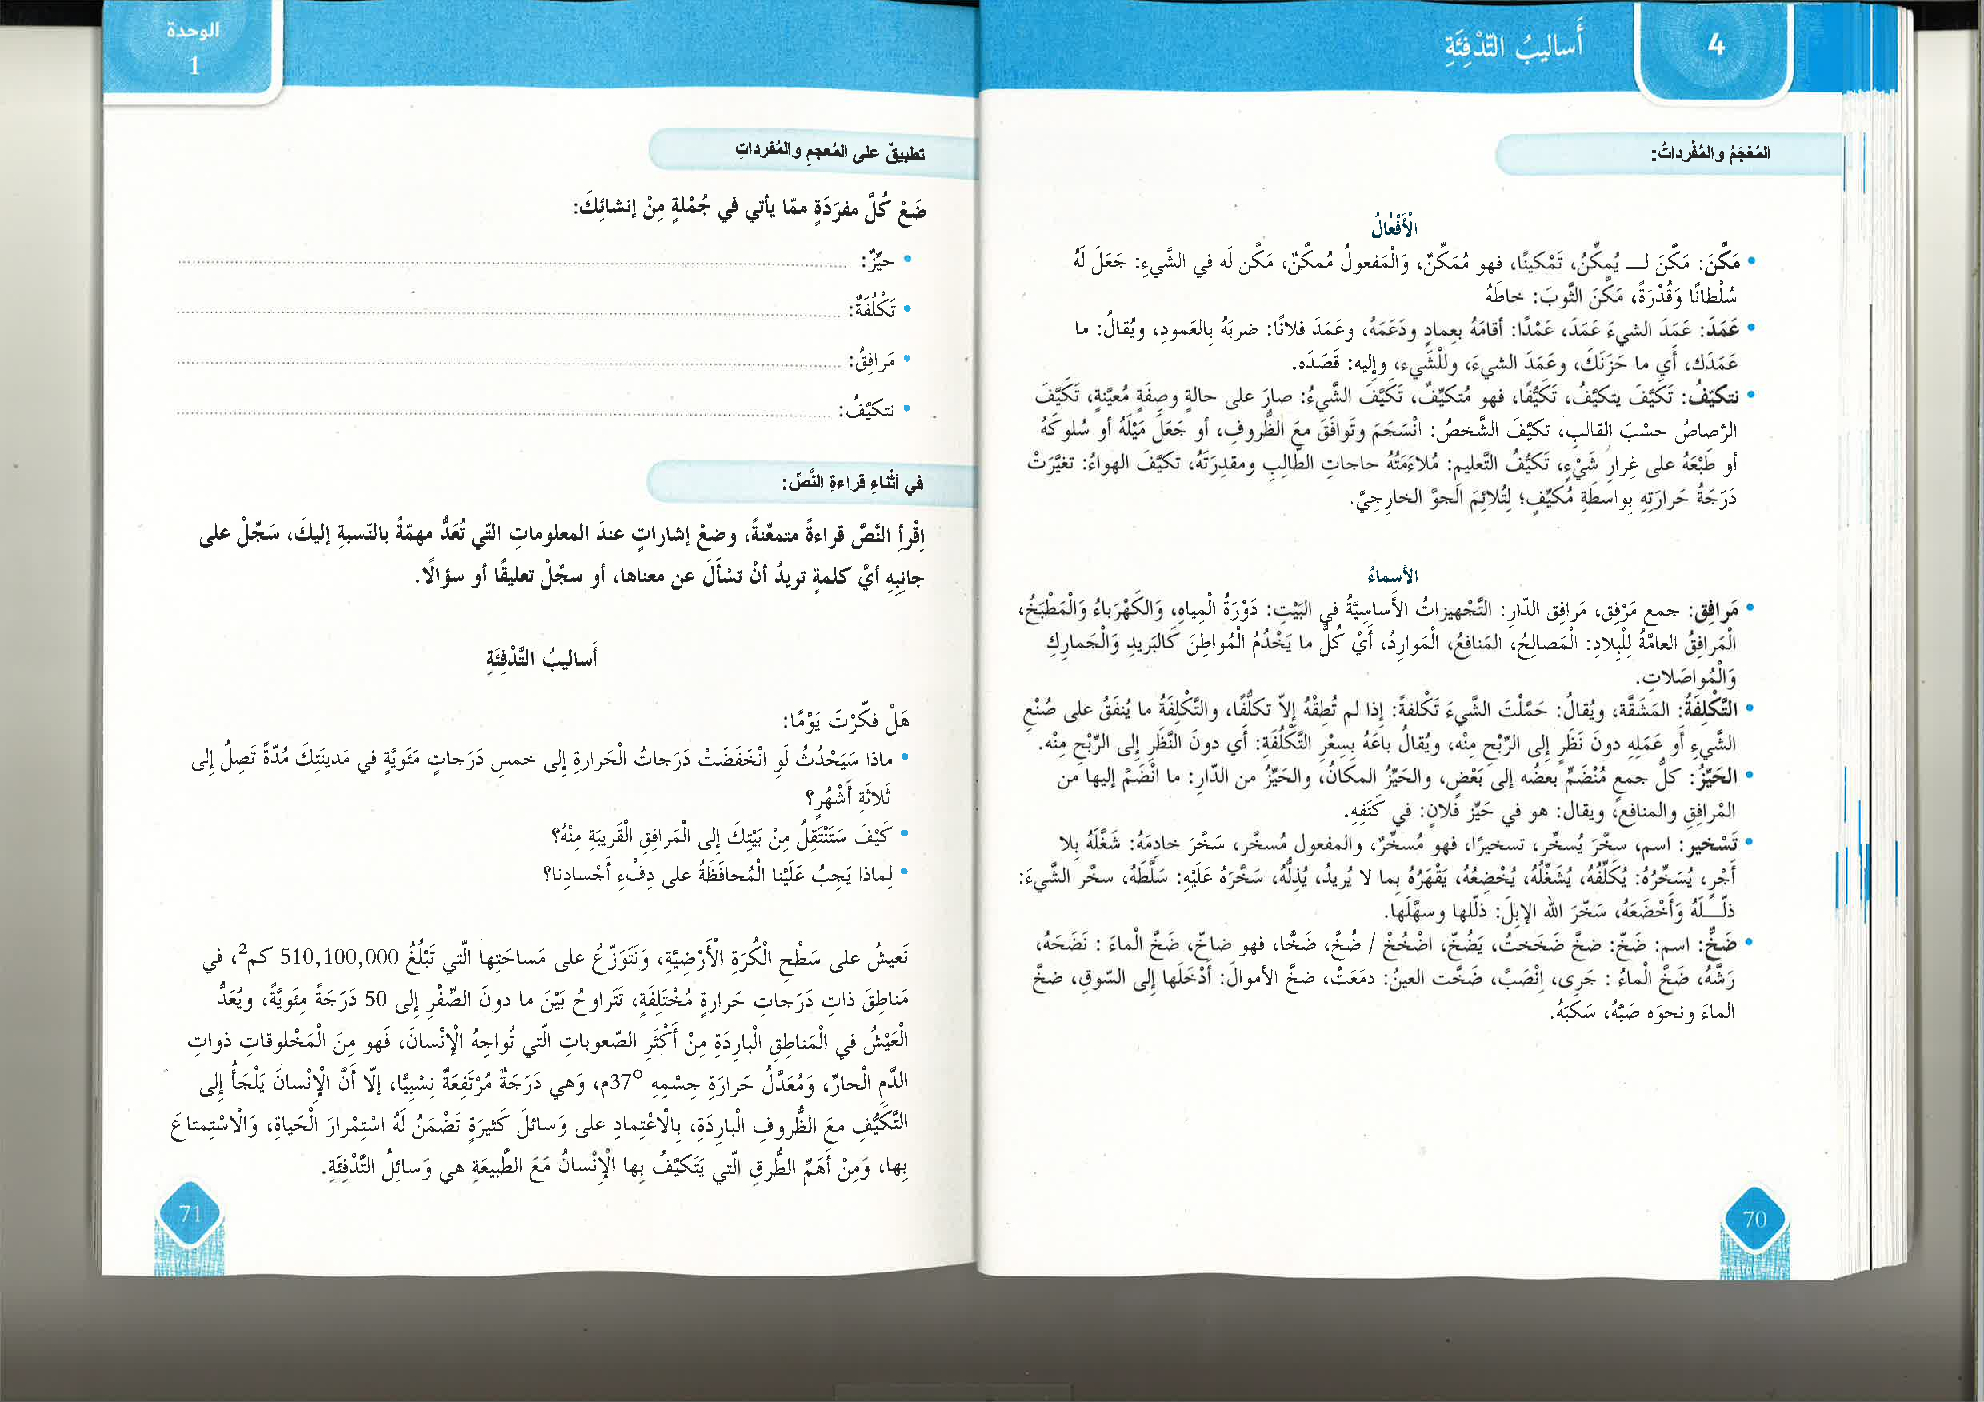 4
أَساليبُ التَّدْفِئَةِ
المُعْجَمُ والمُفْرداتُ:
الْأَفْعالُ
• مَكَّنَ: مَكَّنَ لـ يُمكِّنُ، تَمْكينًا، فهو مُمَكِّنٌ، وَالْمَفعولُ مُمكَّنٌ، مَكَّن لَه في الشَّيءِ: جَعَلَ لَهُ
سُلْطانًا وَقُدْرَةً، مَكَّنَ الثَّوبَ: خاطَهُ
• عَمَدَ: عَمَدَ الشيءَ عَمَدَ، عَمْدًا: أقامَهُ بِعِمادٍ ودَعَمَهُ، وعَمَدَ فلانًا: ضربَهُ بالعَمودِ، ويُقالُ: ما
عَمَدَك، أَي ما حَزَنَكَ، وعَمَدَ الشيءَ، وللْشَّيء، وإليه: قَصَدَه.
• نتكيّفُ: تَكَيَّفَ يتكيَّفُ، تَكَيُّفًا، فهو مُتكيِّفٌ، تَكَيَّفَ الشَّيءُ: صارَ على حالةٍ وصِفَةٍ مُعيَّنةٍ، تَكَيَّفَ
الرَّصاصُ حسْبَ القالبِ، تكيَّفَ الشَّخصُ: انْسَجَمَ وتَوافَقَ معَ الظُّروفِ، أو جَعَلَ مَيْلَهُ أو سُلوكَهُ
أو طَبْعَهُ على غِرارِ شَيْءٍ، تَكيُّفُ التَّعليمِ: مُلاءَمَتُهُ حاجاتِ الطّالِبِ ومقدِرَتَهُ، تكيَّفَ الهواءُ: تغيَّرَتْ
دَرَجَةُ حَرارَتِهِ بِواسطَةِ مُكيِّفٍ؛ لِتُلائِمَ الجوَّ الخارجِيَّ.
الأسماءُ
• مَرافِق: جمع مَرْفِق، مَرافِق الدّارِ: التَّجْهيزاتُ الأَساسِيَّةُ في البَيْتِ: دَوْرَةُ الْمِياهِ، وَالكَهْرَباءُ وَالْمَطْبَخُ،
الْمَرافِقُ العامَّةُ لِلْبِلادِ: الْمَصالِحُ، المَنافِعُ، الْمَوارِدُ، أَيْ كُلُّ ما يَخْدُمُ الْمُواطِنَ كَالبَريدِ وَالْجَمارِكِ
وَالْمُواصَلاتِ.
• التَّكْلِفَةُ: المَشَقَّة، ويُقالُ: حَمَّلْتَ الشَّيءَ تَكْلفةً: إذا لم تُطِقْهُ إلّا تكلُّفًا، والتَّكْلِفَةُ ما يُنفَقُ على صُنْعِ
الشَّيءِ أو عَمَلِهِ دونَ نَظَرٍ إلى الرِّبْحِ مِنْه، ويُقالُ باعَهُ بِسعْرِ التَّكْلُفَةِ: أي دونَ النَّظَرِ إلى الرِّبْحِ مِنْه.
• الحَيِّزُ: كلُّ جمعٍ مُنْضَمٍّ بعضُه إلى بَعْضٍ، والحَيِّزُ المكانُ، والحَيِّزُ من الدّارِ: ما انْضَمَّ إليها من
المْرافِقِ والمنافعِ، ويقال: هو في حَيِّز فُلانٍ: في كَنَفِهِ.
• تَسْخير: اسم، سخَّرَ يُسخِّر، تسخيرًا، فهو مُسخِّرٌ، والمفعول مُسخَّر، سَخَّرَ خادِمَهُ: شَغَّلَهُ بِلا
أَجْرٍ، يُسَخِّرُهُ: يُكَلِّفُهُ، يُشَغِّلُهُ، يُخْضِعُهُ، يَقْهَرُهُ بِما لا يُريدُ، يُذِلُّهُ، سَخَّرَهُ عَلَيْهِ: سَلَّطَهُ، سخَّر الشَّيءَ:
ذلَّـلَهُ وَأَخْضَعَهُ، سَخَّرَ الله الإبلَ: ذلّلها وسهَّلَها.
• ضَخٌّ: اسم: ضَخّ: ضخَّ ضَخَختُ، يَضُخّ، اضْخُخْ / ضُخَّ، ضَخًّا، فهو ضاخّ، ضَخَّ الْماءَ : نَضَحَهُ،
رَشَّهُ، ضَخَّ الْماءُ : جَرى، اِنْصَبَّ، ضَخَّت العينُ: دمَعَتْ، ضخَّ الأموالَ: أَدْخَلَها إلى السّوقِ، ضخَّ
الماءَ ونحوَه صَبَّهُ، سَكَبَهُ.
70
الوحدة
1
تطبيقٌ على المُعجمِ والمُفرداتِ
ضَعْ كُلَّ مفرَدَةٍ ممّا يأتي في جُمْلةٍ مِنْ إنشائِكَ:
• حيِّزٌ:
• تَكْلُفَةٌ:
• مَرافِقُ:
• نتكيَّفُ:
في أثناءِ قراءةِ النَّصِّ:
اِقْرأِ النَّصَّ قراءةً متمعِّنةً، وضعْ إشاراتٍ عندَ المعلوماتِ التّي تُعَدُّ مهمّةً بالنّسبةِ إليكَ، سَجِّلْ على
جانِبِهِ أيَّ كلمةٍ تريدُ أنْ تسْألَ عن معناها، أو سجِّلْ تعليقًا أو سؤالًا.
أَساليبُ التَّدْفِئَةِ
هَلْ فكَّرْتَ يَوْمًا:
• ماذا سَيَحْدُثُ لَوِ انْخَفَضَتْ دَرَجاتُ الْحَرارةِ إلى خمسِ دَرَجاتٍ مَئَوِيَّةٍ في مَدينَتِكَ مُدَّةً تَصِلُ إِلى
ثَلاثَةِ أَشْهُرٍ؟
• كَيْفَ سَتَنْتَقِلُ مِنْ بَيْتِكَ إلى الْمَرافِقِ الْقَريبَةِ مِنْهُ؟
• لِماذا يَجِبُ عَلَيْنا الْمُحافَظَةُ على دِفْءِ أَجْسادِنا؟
نَعيشُ على سَطْحِ الْكُرَةِ الْأَرْضِيَّةِ، وَنَتَوَزَّعُ على مَساحَتِها الّتي تَبْلُغُ 510,100,000 كم²، في
مَناطِقَ ذاتِ دَرَجاتِ حَرارةٍ مُخْتَلِفَةٍ، تَتَراوحُ بَيْنَ ما دونَ الصِّفْرِ إِلى 50 دَرَجَةً مِئَوِيَّةً، ويُعَدُّ
الْعَيْشُ في الْمَناطِقِ الْبارِدَةِ مِنْ أَكْثَرِ الصّعوباتِ الّتي تُواجِهُ الْإِنْسانَ، فَهو مِنَ الْمَخْلوقاتِ ذَواتِ
الدَّمِ الْحارِّ، وَمُعَدَّلُ حَرارَةِ جِسْمِهِ 37°م، وَهي دَرَجَةٌ مُرْتَفِعَةٌ نِسْبِيًّا، إلّا أَنَّ الْإِنْسانَ يَلْجَأُ إِلى
التَّكَيُّفِ معَ الظُّروفِ الْبارِدَةِ، بِالْاعْتِمادِ على وَسائلَ كَثيرَةٍ تَضْمَنُ لَهُ اسْتِمْرارَ الْحَياةِ، وَالْاسْتِمتاعَ
بِها، وَمِنْ أَهَمِّ الطُّرقِ الّتي يَتَكيَّفُ بِها الْإِنْسانُ مَعَ الطَّبيعَةِ هي وَسائِلُ التَّدْفِئَةِ.
71